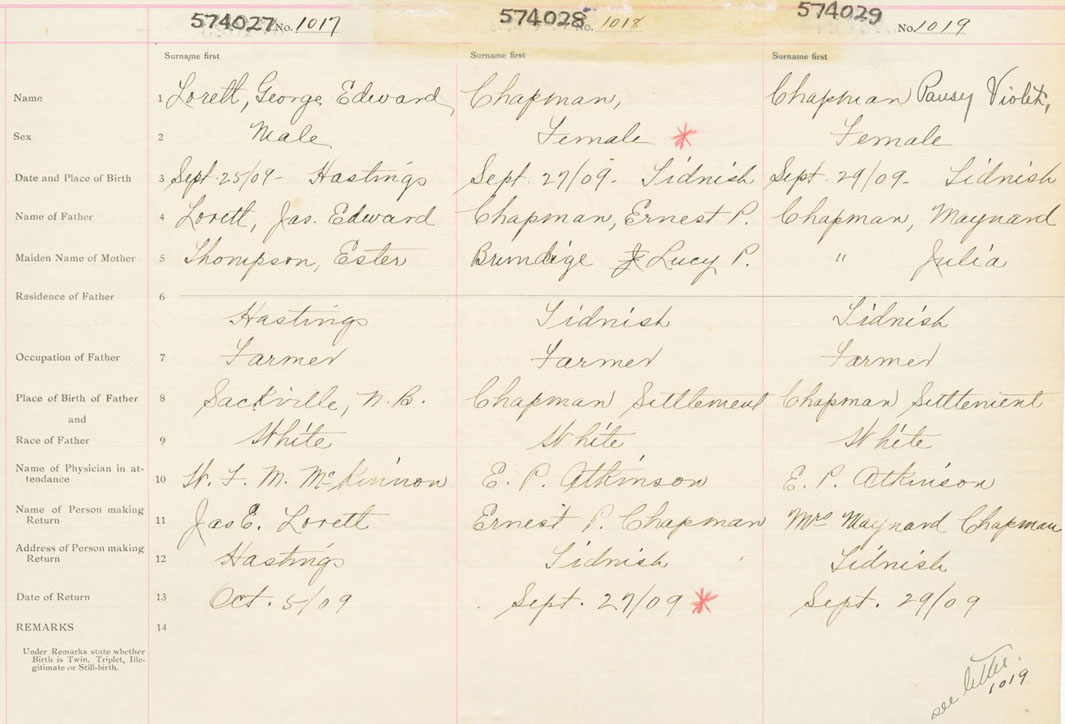 574027 No. 1017 574028 No. 1018 574029 No. 1019
Surname first Surname first Surname first
Name 1 Lorett, George Edward, Chapman, Chapman Pansy Violet,
Sex 2 Male Female * Female
Date and Place of Birth 3 Sept. 25/09- Hastings Sept. 27/09- Tidnish Sept. 29/09- Tidnish
Name of Father 4 Lorett, Jas. Edward Chapman, Ernest P. Chapman, Maynard
Maiden Name of Mother 5 Thompson, Ester Brundige Lucy P. " Julia
Residence of Father 6
Hastings Tidnish Tidnish
Occupation of Father 7 Farmer Farmer Farmer
Place of Birth of Father 8 Sackville, N.B. Chapman Settlement Chapman Settlement
and
Race of Father 9 White White White
Name of Physician in at-
tendance 10 W. F. M. McKinnon E. P. Atkinson E. P. Atkinson
Name of Person making
Return 11 Jas E. Lorett Ernest P. Chapman Mrs Maynard Chapman
Address of Person making
Return 12 Hastings Tidnish Tidnish
Date of Return 13 Oct. 5/09 Sept. 27/09 * Sept. 29/09
REMARKS 14
Under Remarks state whether
Birth is Twin, Triplet, Ille-
gitimate or Still-birth.
see letter
1019